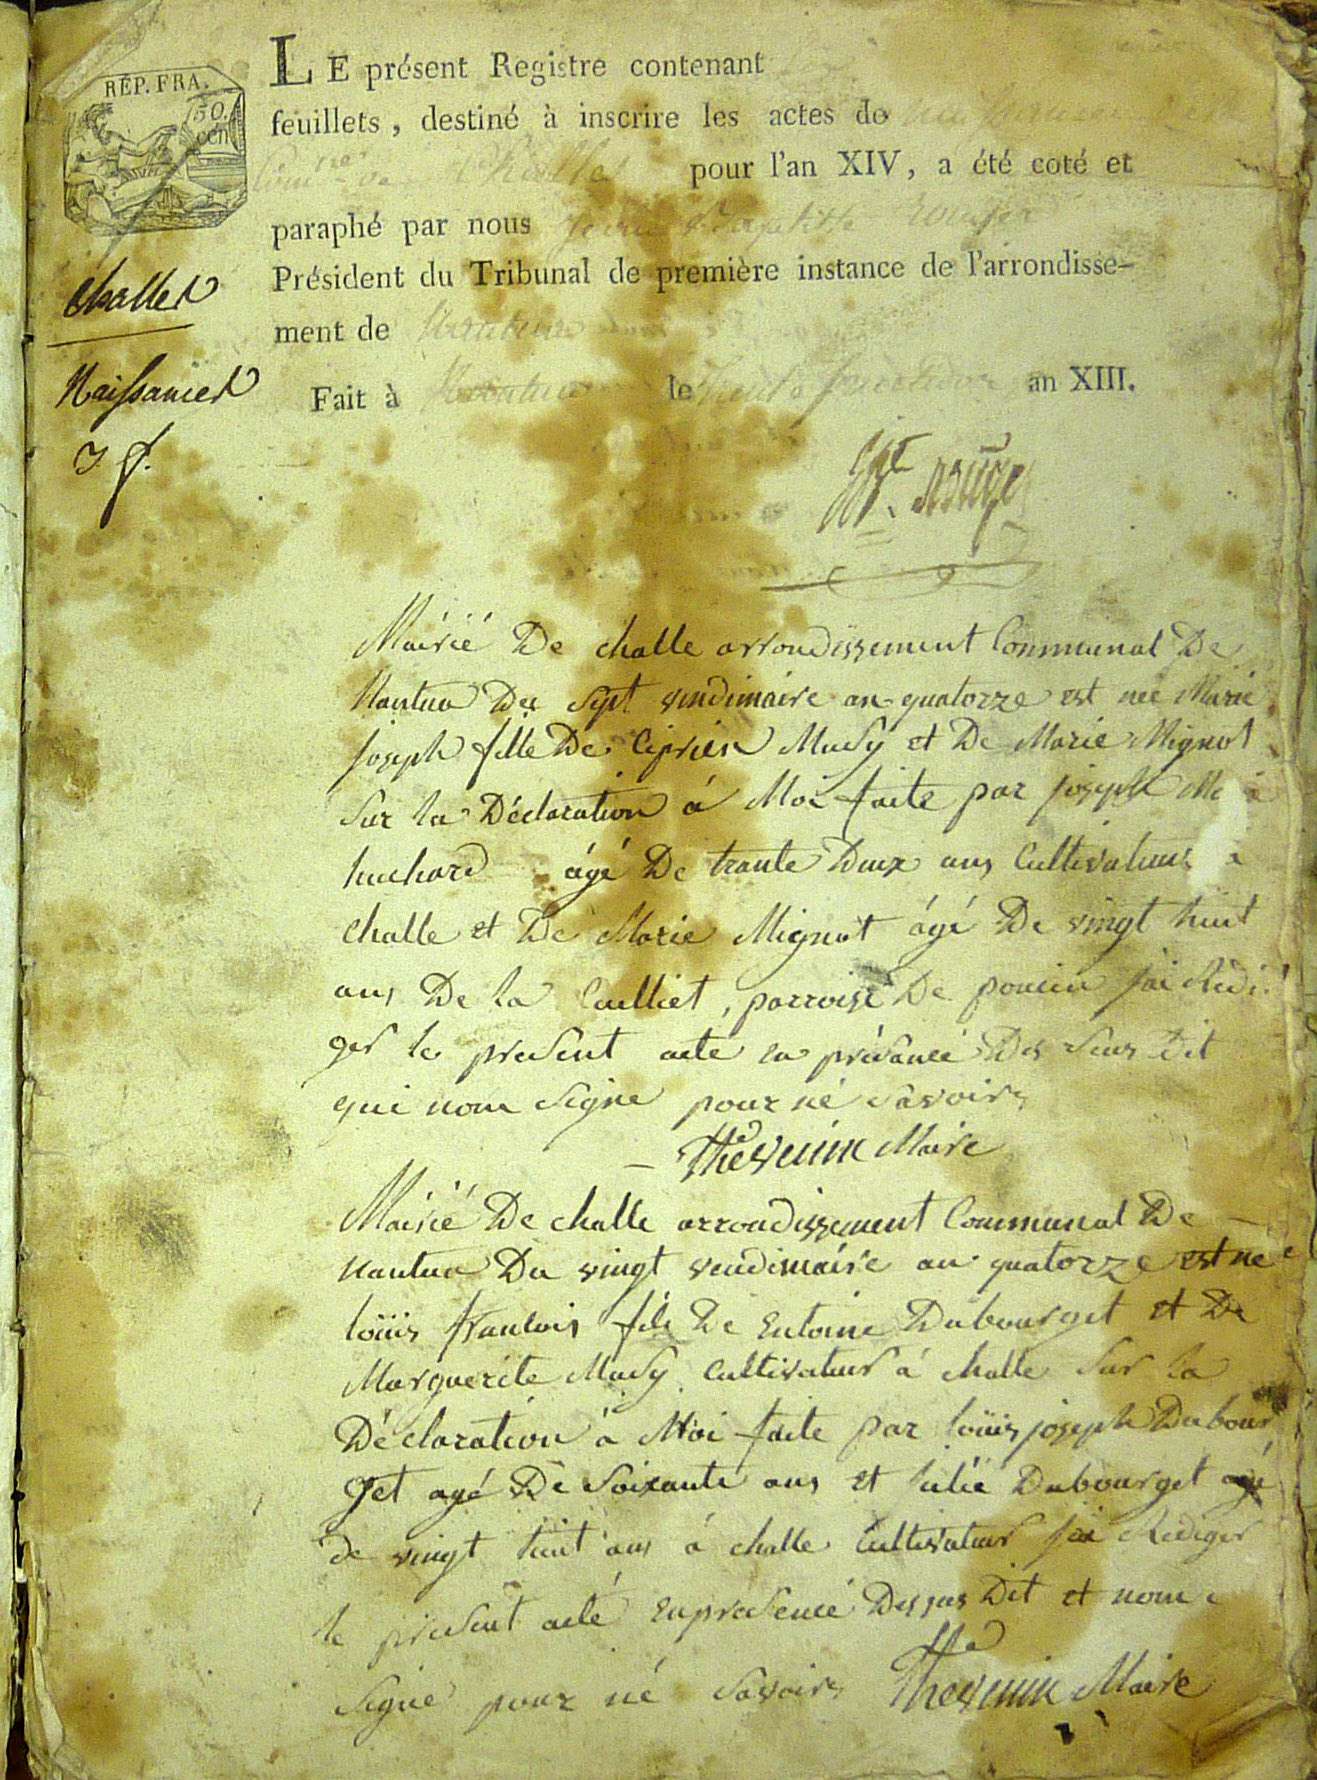 RÉP. FRA.
50.
cen
LE présent Registre contenant
feuillets, destiné à inscrire les actes de
Challes pour l'an XIV, a été coté et
paraphé par nous Jean Baptiste
Président du Tribunal de première instance de l'arrondisse-
ment de Nantua
Fait à Nantua le trente fructidor an XIII.
Challes
Naissances
Mairié De challe arrondissement Communal De
Nantua Des sept vendimaire an quatorze est née Marie
joseph fille De Ciprien Mudy et De Marie Mignot
Sur la Déclaration à Moi faite par joseph
huchard agé De trante Deux ans Cultivateur a
Challe et De Marie Mignot ágé De vingt huit
ans De la Cuelliet, parroise De poncin jai Redi
ger le present acte en présance Des Sus Dit
qui nom Signe pour né Savoir
Thevenin Maire
Mairié De challe arrondissement Communal De
Nantua Du vingt vendimaire an quatorze est né
loüis francois fils De Entoine Dubourget et De
Marguerite Mudy Cultivateur á challe Sur la
Déclaration à Moi faite par loüis joseph Dubour
get agé De Soixante ans et Dubourget agé
de vingt huit ans á challe Cultivateur jai Rediger
le present acté en presence Des sus Dit et nom
Signe pour né Savoir Thevenin Maire